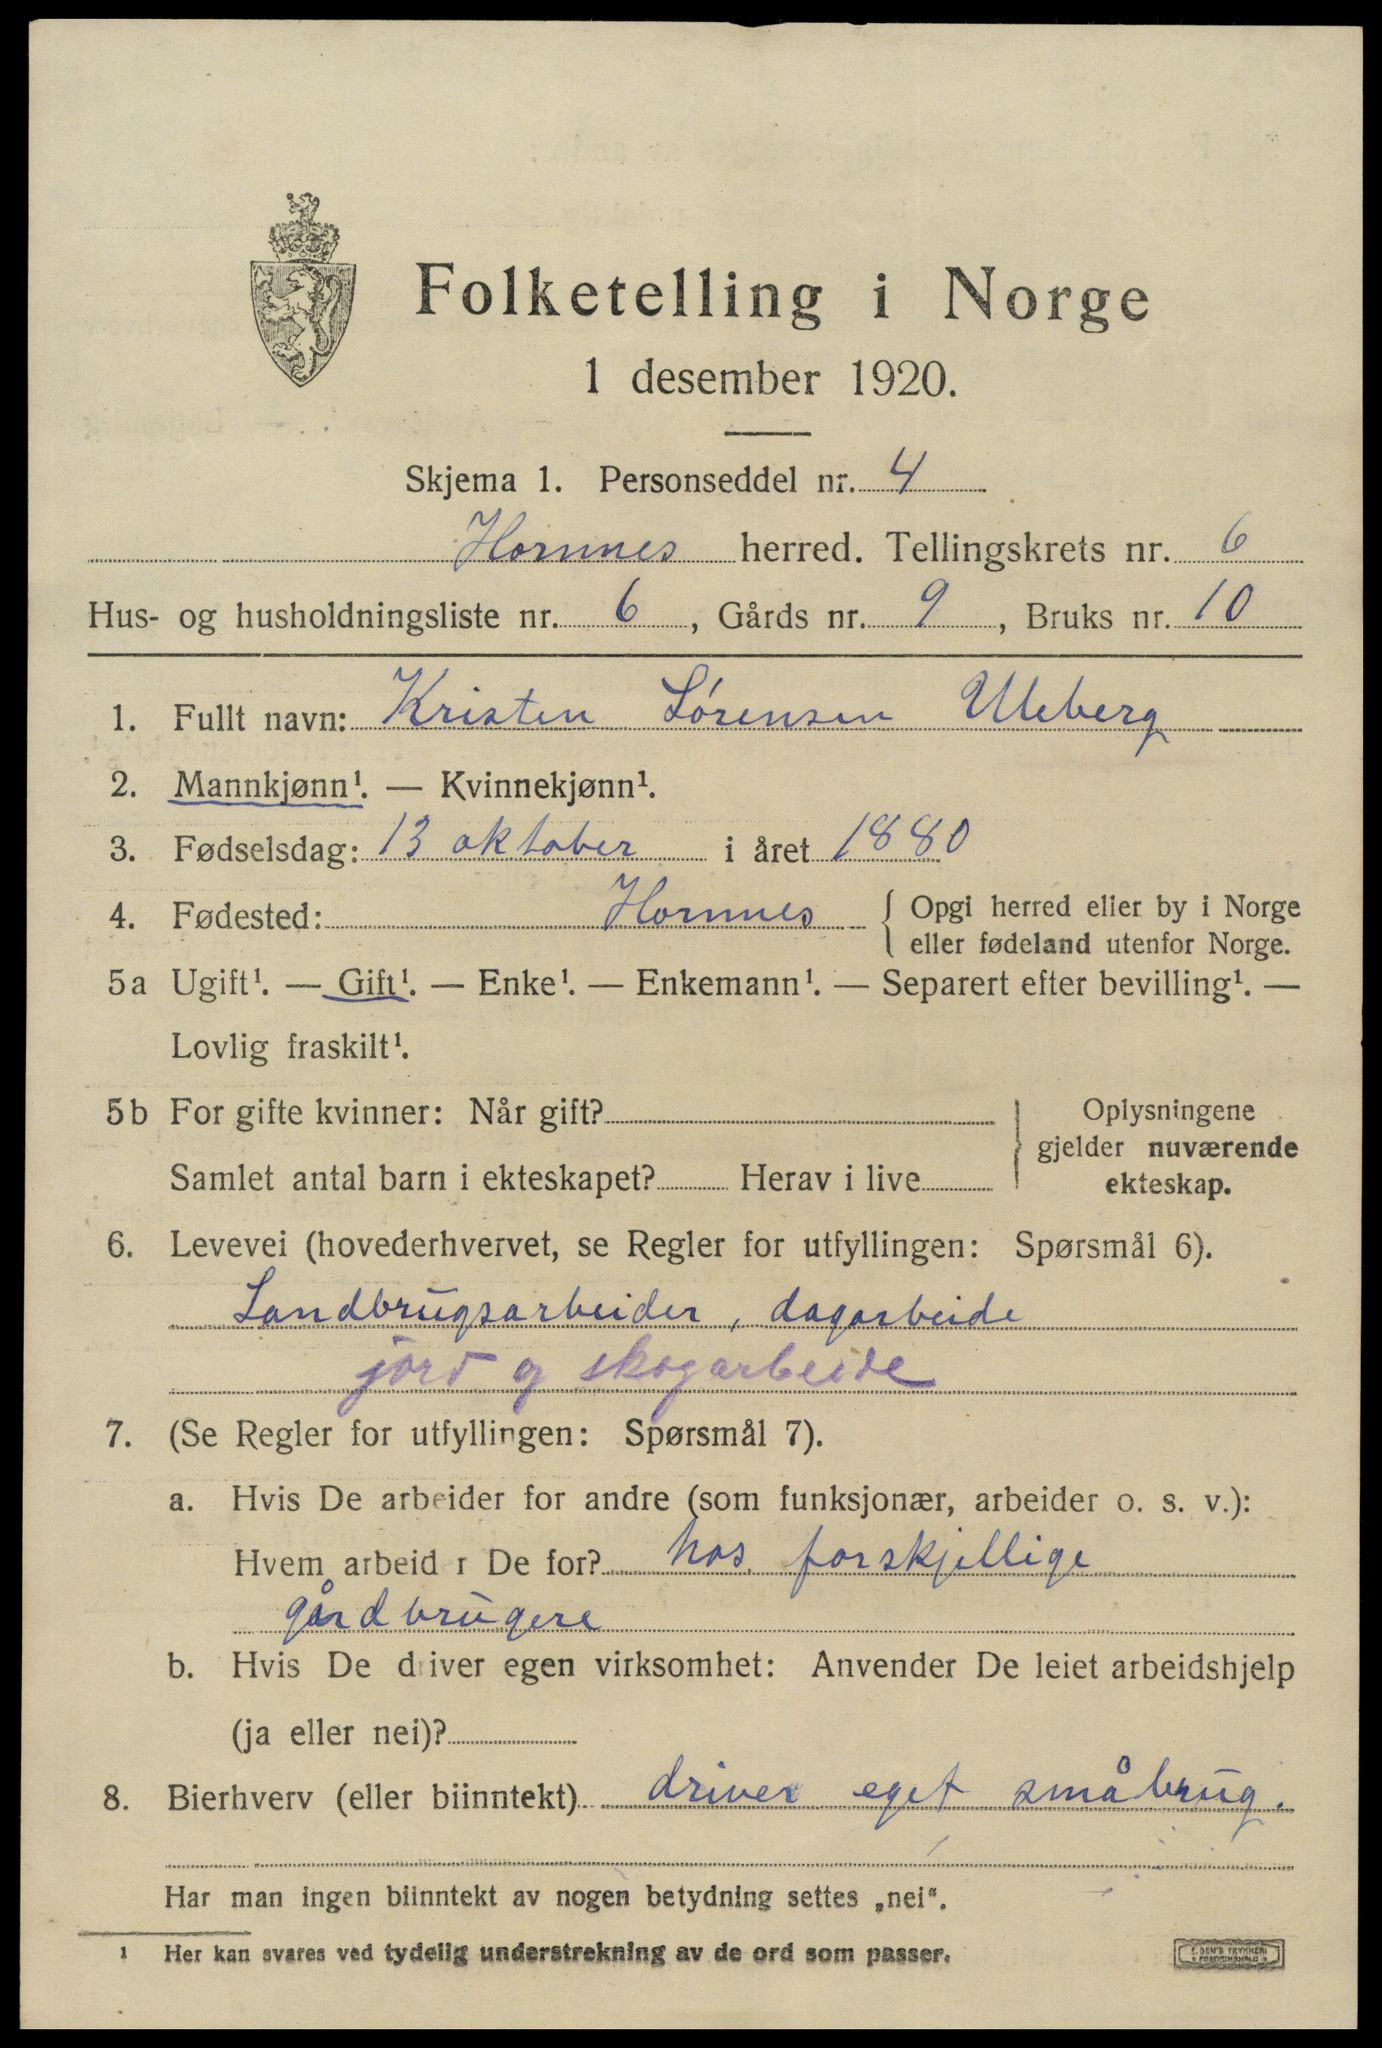 Folketelling i Norge
1 desember 1920.
Skjema 1. Personseddel nr. 4
Hornnes herred. Tellingskrets nr. 6
Hus- og husholdningsliste nr. 6, Gårds nr. 9, Bruks nr. 10
1. Fullt navn: Kristen Sørensen Uleberg
2. Mannkjønn¹. — Kvinnekjønn¹.
3. Fødselsdag: 13 oktober i året 1880
4. Fødested: Hornnes { Opgi herred eller by i Norge
eller fødeland utenfor Norge.
5a Ugift¹. — Gift¹. — Enke¹. — Enkemann¹. — Separert efter bevilling¹. —
Lovlig fraskilt¹.
5b For gifte kvinner: Når gift?
Samlet antal barn i ekteskapet? Herav i live
} Oplysningene
gjelder nuværende
ekteskap.
6. Levevei (hovederhvervet, se Regler for utfyllingen: Spørsmål 6).
Landbrugsarbeider, dagarbeide
jord og skogarbeide
7. (Se Regler for utfyllingen: Spørsmål 7).
a. Hvis De arbeider for andre (som funksjonær, arbeider o. s. v.):
Hvem arbeid r De for? hos forskjellige
gårdbrugere
b. Hvis De driver egen virksomhet: Anvender De leiet arbeidshjelp
(ja eller nei)?
8. Bierhverv (eller biinntekt) driver eget småbrug.
Har man ingen biinntekt av nogen betydning settes „nei“.
¹ Her kan svares ved tydelig understrekning av de ord som passer.